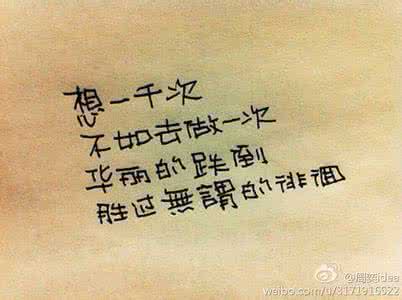 想一千次
不如去做一次
华丽的跌倒
胜过無謂的徘徊
@周奕idea
weibo.com/u/3171916522